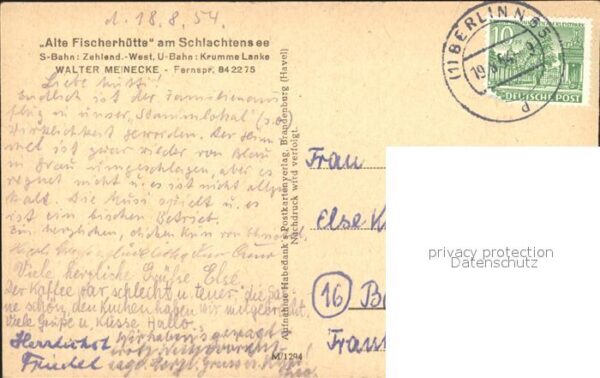 d. 18.8.54.
„Alte Fischerhütte" am Schlachtensee
S-Bahn: Zehlend.-West, U-Bahn: Krumme Lanke
WALTER MEINECKE - Fernspr. 842275
Liebe Mutti!
Endlich ist der Familienaus
flug in unser „Stammlokal" (s.o.)
Wirklichkeit geworden. Der Him
mel ist zwar wieder von Blau
in Grau umgeschlagen, aber es
regnet nicht u. es ist nicht allzu
kalt. Die Musi spielt u. es
ist ein bischen Betrieb.
Einen herzlichen, dicken Kuss von
Viele herzliche Grüße Else.
Der Kaffee war schlecht u. teuer, die Sah
ne schön, den Kuchen haben wir mitgebracht.
Viele Grüße u. Küsse Hallo.
Herzlichst
Friedel
M/1294
Aufnahme Habedank's Postkartenverlag, Brandenburg (Havel)
Nachdruck wird verfolgt.
(1) BERLIN N 65
10
DEUTSCHE POST
Frau
Else K
16 B
privacy protection
Datenschutz